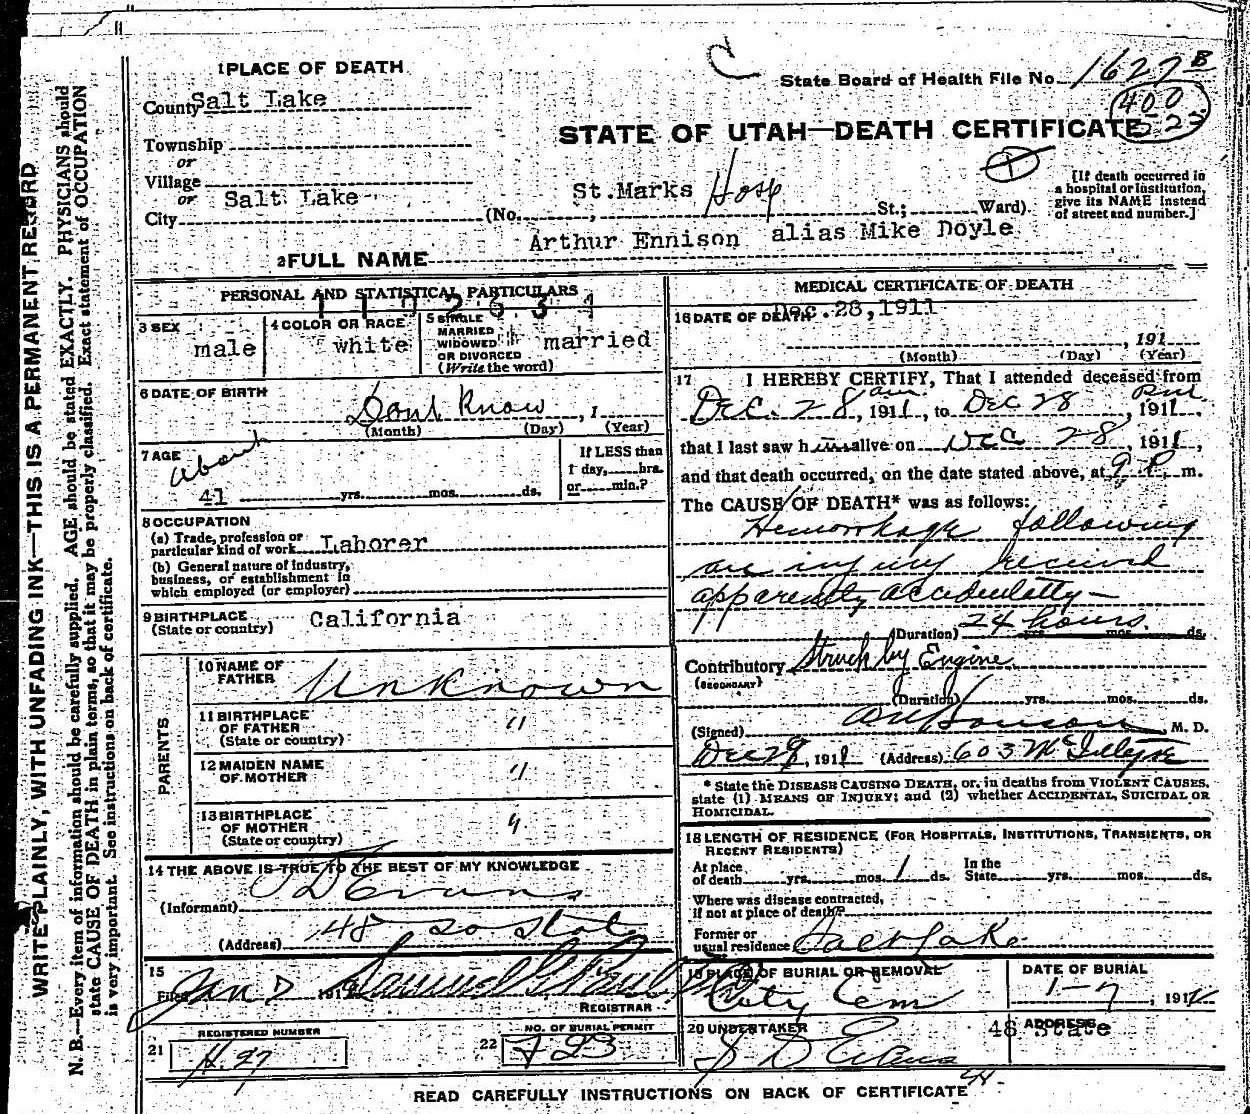 1 PLACE OF DEATH
State Board of Health File No. 1627 B
County Salt Lake
400
STATE OF UTAH—DEATH CERTIFICATE
Township
or
Village
or
City Salt Lake (No. St. Marks Hosp St.; Ward).
[If death occurred in
a hospital or institution,
give its NAME instead
of street and number.]
2 FULL NAME Arthur Ennison alias Mike Doyle
PERSONAL AND STATISTICAL PARTICULARS
3 SEX
male
4 COLOR OR RACE
white
5 SINGLE
MARRIED
WIDOWED
OR DIVORCED
(Write the word)
married
6 DATE OF BIRTH
Dont Know, 1
(Month) (Day) (Year)
7 AGE
about
41 yrs. mos. ds.
If LESS than
1 day, hrs.
or min.?
8 OCCUPATION
(a) Trade, profession or
particular kind of work Laborer
(b) General nature of industry,
business, or establishment in
which employed (or employer)
9 BIRTHPLACE
(State or country) California
PARENTS
10 NAME OF
FATHER Unknown
11 BIRTHPLACE
OF FATHER
(State or country) "
12 MAIDEN NAME
OF MOTHER "
13 BIRTHPLACE
OF MOTHER
(State or country) "
14 THE ABOVE IS TRUE TO THE BEST OF MY KNOWLEDGE
(Informant) S D Evans
(Address) 48 So State
15
Filed Jan 191 Samuel G Paul
REGISTRAR
REGISTERED NUMBER
21 H.27
NO. OF BURIAL PERMIT
22
MEDICAL CERTIFICATE OF DEATH
16 DATE OF DEATH Dec. 28, 1911
, 191
(Month) (Day) (Year)
17 I HEREBY CERTIFY, That I attended deceased from
Dec. 28 am, 1911, to Dec 28 Pm, 1911,
that I last saw him alive on Dec 28, 1911,
and that death occurred, on the date stated above, at 9 P. m.
The CAUSE OF DEATH* was as follows:
Hemorrhage following
an injury received
apparently accidentally—
(Duration) 24 hours. yrs. mos. ds.
Contributory Struck by Engine
(SECONDARY)
(Duration) yrs. mos. ds.
(Signed) M. D.
Dec 29, 1911 (Address) 603 McIntyre
* State the DISEASE CAUSING DEATH, or, in deaths from VIOLENT CAUSES,
state (1) MEANS OF INJURY; and (2) whether ACCIDENTAL, SUICIDAL OR
HOMICIDAL.
18 LENGTH OF RESIDENCE (FOR HOSPITALS, INSTITUTIONS, TRANSIENTS, OR
RECENT RESIDENTS)
At place
of death yrs. mos. 1 ds.
In the
State yrs. mos. ds.
Where was disease contracted,
if not at place of death?
Former or
usual residence Salt Lake
19 PLACE OF BURIAL OR REMOVAL
City Cem
DATE OF BURIAL
1-7, 1912
20 UNDERTAKER
S D Evans
ADDRESS
48 State
READ CAREFULLY INSTRUCTIONS ON BACK OF CERTIFICATE
WRITE PLAINLY, WITH UNFADING INK—THIS IS A PERMANENT RECORD
N. B.—Every item of information should be carefully supplied. AGE should be stated EXACTLY. PHYSICIANS should
state CAUSE OF DEATH in plain terms, so that it may be properly classified. Exact statement of OCCUPATION
is very important. See instructions on back of certificate.